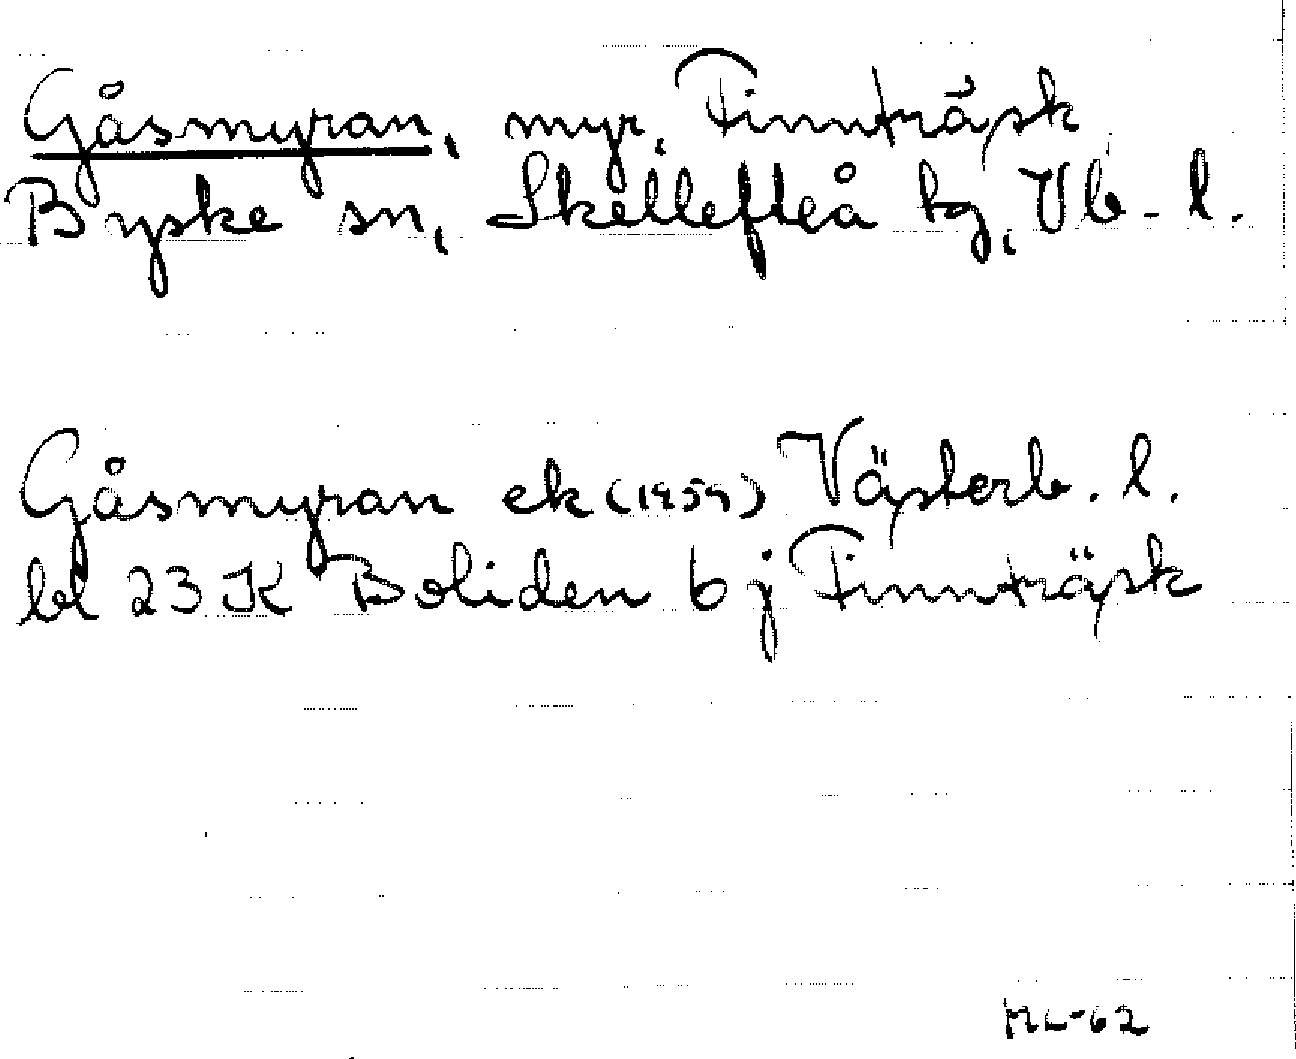 Gåsmyran, myr, Finnträsk
Byske sn, Skellefteå tg, Vb. l.
Gåsmyran ek (1959) Västerb. l.
bl 23 K Boliden b j Finnträsk
ML-62